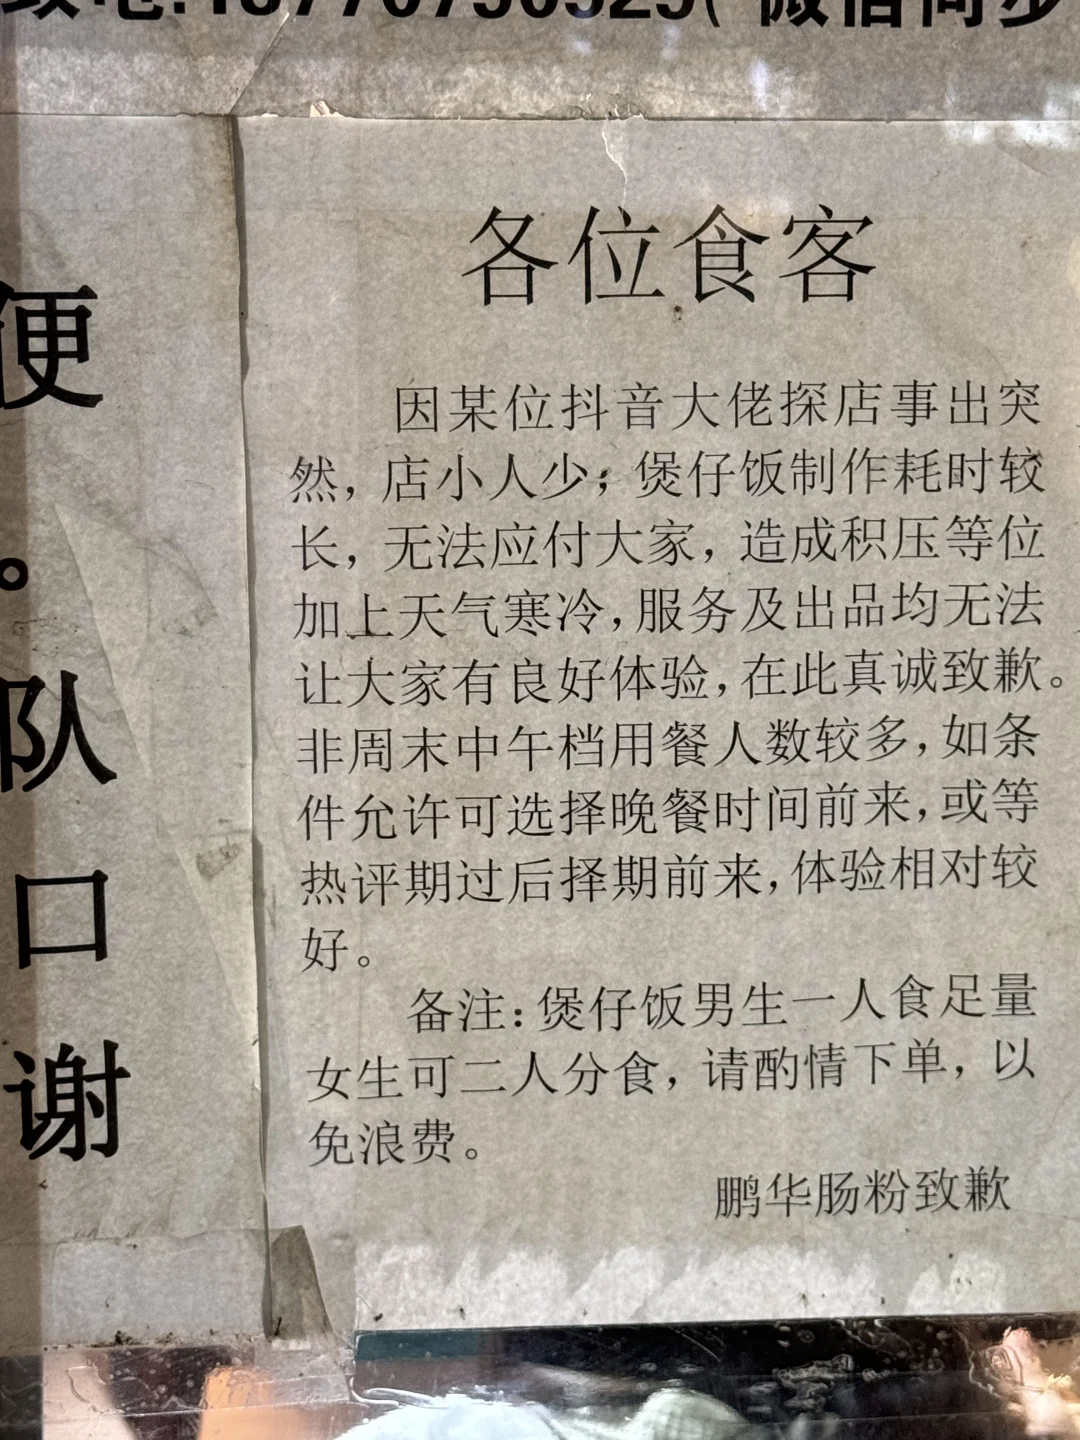 微信同步
各位食客
因某位抖音大佬探店事出突
然，店小人少；煲仔饭制作耗时较
长，无法应付大家，造成积压等位
加上天气寒冷，服务及出品均无法
让大家有良好体验，在此真诚致歉。
非周末中午档用餐人数较多，如条
件允许可选择晚餐时间前来，或等
热评期过后择期前来，体验相对较
好。
备注：煲仔饭男生一人食足量
女生可二人分食，请酌情下单，以
免浪费。
鹏华肠粉致歉
便
。
队
口
谢